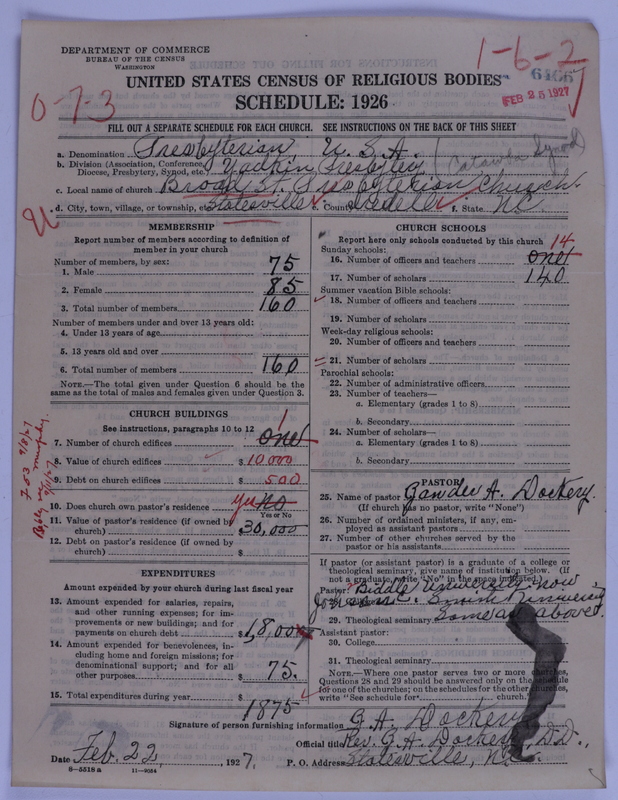 DEPARTMENT OF COMMERCE
BUREAU OF THE CENSUS
WASHINGTON
1-6-2
6466
FEB 25 1927
UNITED STATES CENSUS OF RELIGIOUS BODIES
SCHEDULE: 1926
0-7-3
FILL OUT A SEPARATE SCHEDULE FOR EACH CHURCH. SEE INSTRUCTIONS ON THE BACK OF THIS SHEET
a. Denomination Presbyterian U. S. A.
b. Division (Association, Conference, Diocese, Presbytery, Synod, etc.) Yadkin Presbytery Catawba Synod
c. Local name of church Broad St. Presbyterian Church.
d. City, town, village, or township, etc. Statesville e. County Iredell f. State N.C.
MEMBERSHIP
Report number of members according to definition of
member in your church
Number of members, by sex:
1. Male 75
2. Female 85
3. Total number of members 160
Number of members under and over 13 years old:
4. Under 13 years of age
5. 13 years old and over
6. Total number of members 160
NOTE.—The total given under Question 6 should be the
same as the total of males and females given under Question 3.
CHURCH BUILDINGS
See instructions, paragraphs 10 to 12
7. Number of church edifices one 1
8. Value of church edifices $ 10000
9. Debt on church edifices $ 500
10. Does church own pastor's residence yes no
Yes or No
11. Value of pastor's residence (if owned by
church) $ 30,000
12. Debt on pastor's residence (if owned by
church) $
EXPENDITURES
Amount expended by your church during last fiscal year
13. Amount expended for salaries, repairs,
and other running expenses; for im-
provements or new buildings; and for
payments on church debt $ 1,800
14. Amount expended for benevolences, in-
cluding home and foreign missions; for
denominational support; and for all
other purposes $ 75.
15. Total expenditures during year $ 1875
CHURCH SCHOOLS
Report here only schools conducted by this church
Sunday schools:
16. Number of officers and teachers one 14
17. Number of scholars 140
Summer vacation Bible schools:
18. Number of officers and teachers
19. Number of scholars
Week-day religious schools:
20. Number of officers and teachers
21. Number of scholars
Parochial schools:
22. Number of administrative officers
23. Number of teachers—
a. Elementary (grades 1 to 8)
b. Secondary
24. Number of scholars—
a. Elementary (grades 1 to 8)
b. Secondary
PASTOR
25. Name of pastor A. Dockery.
(If church has no pastor, write "None")
26. Number of ordained ministers, if any, em-
ployed as assistant pastors
27. Number of other churches served by the
pastor or his assistants
If pastor (or assistant pastor) is a graduate of a college or
theological seminary, give name of institution below. (If
not a graduate write "No" in the space indicated.)
Pastor: Biddle University now
29. Theological seminary Same as above.
Assistant pastor:
30. College
31. Theological seminary
NOTE.—Where one pastor serves two or more churches,
Questions 28 and 29 should be answered only on the schedule
for one of the churches; on the schedules for the other churches,
write "See schedule for
Signature of person furnishing information G. A. Dockery
Official title Rev. G. A. Dockery, D.D.,
Date Feb. 22, 1927. P. O. Address Statesville, N.C.
8-5518a 11-9054